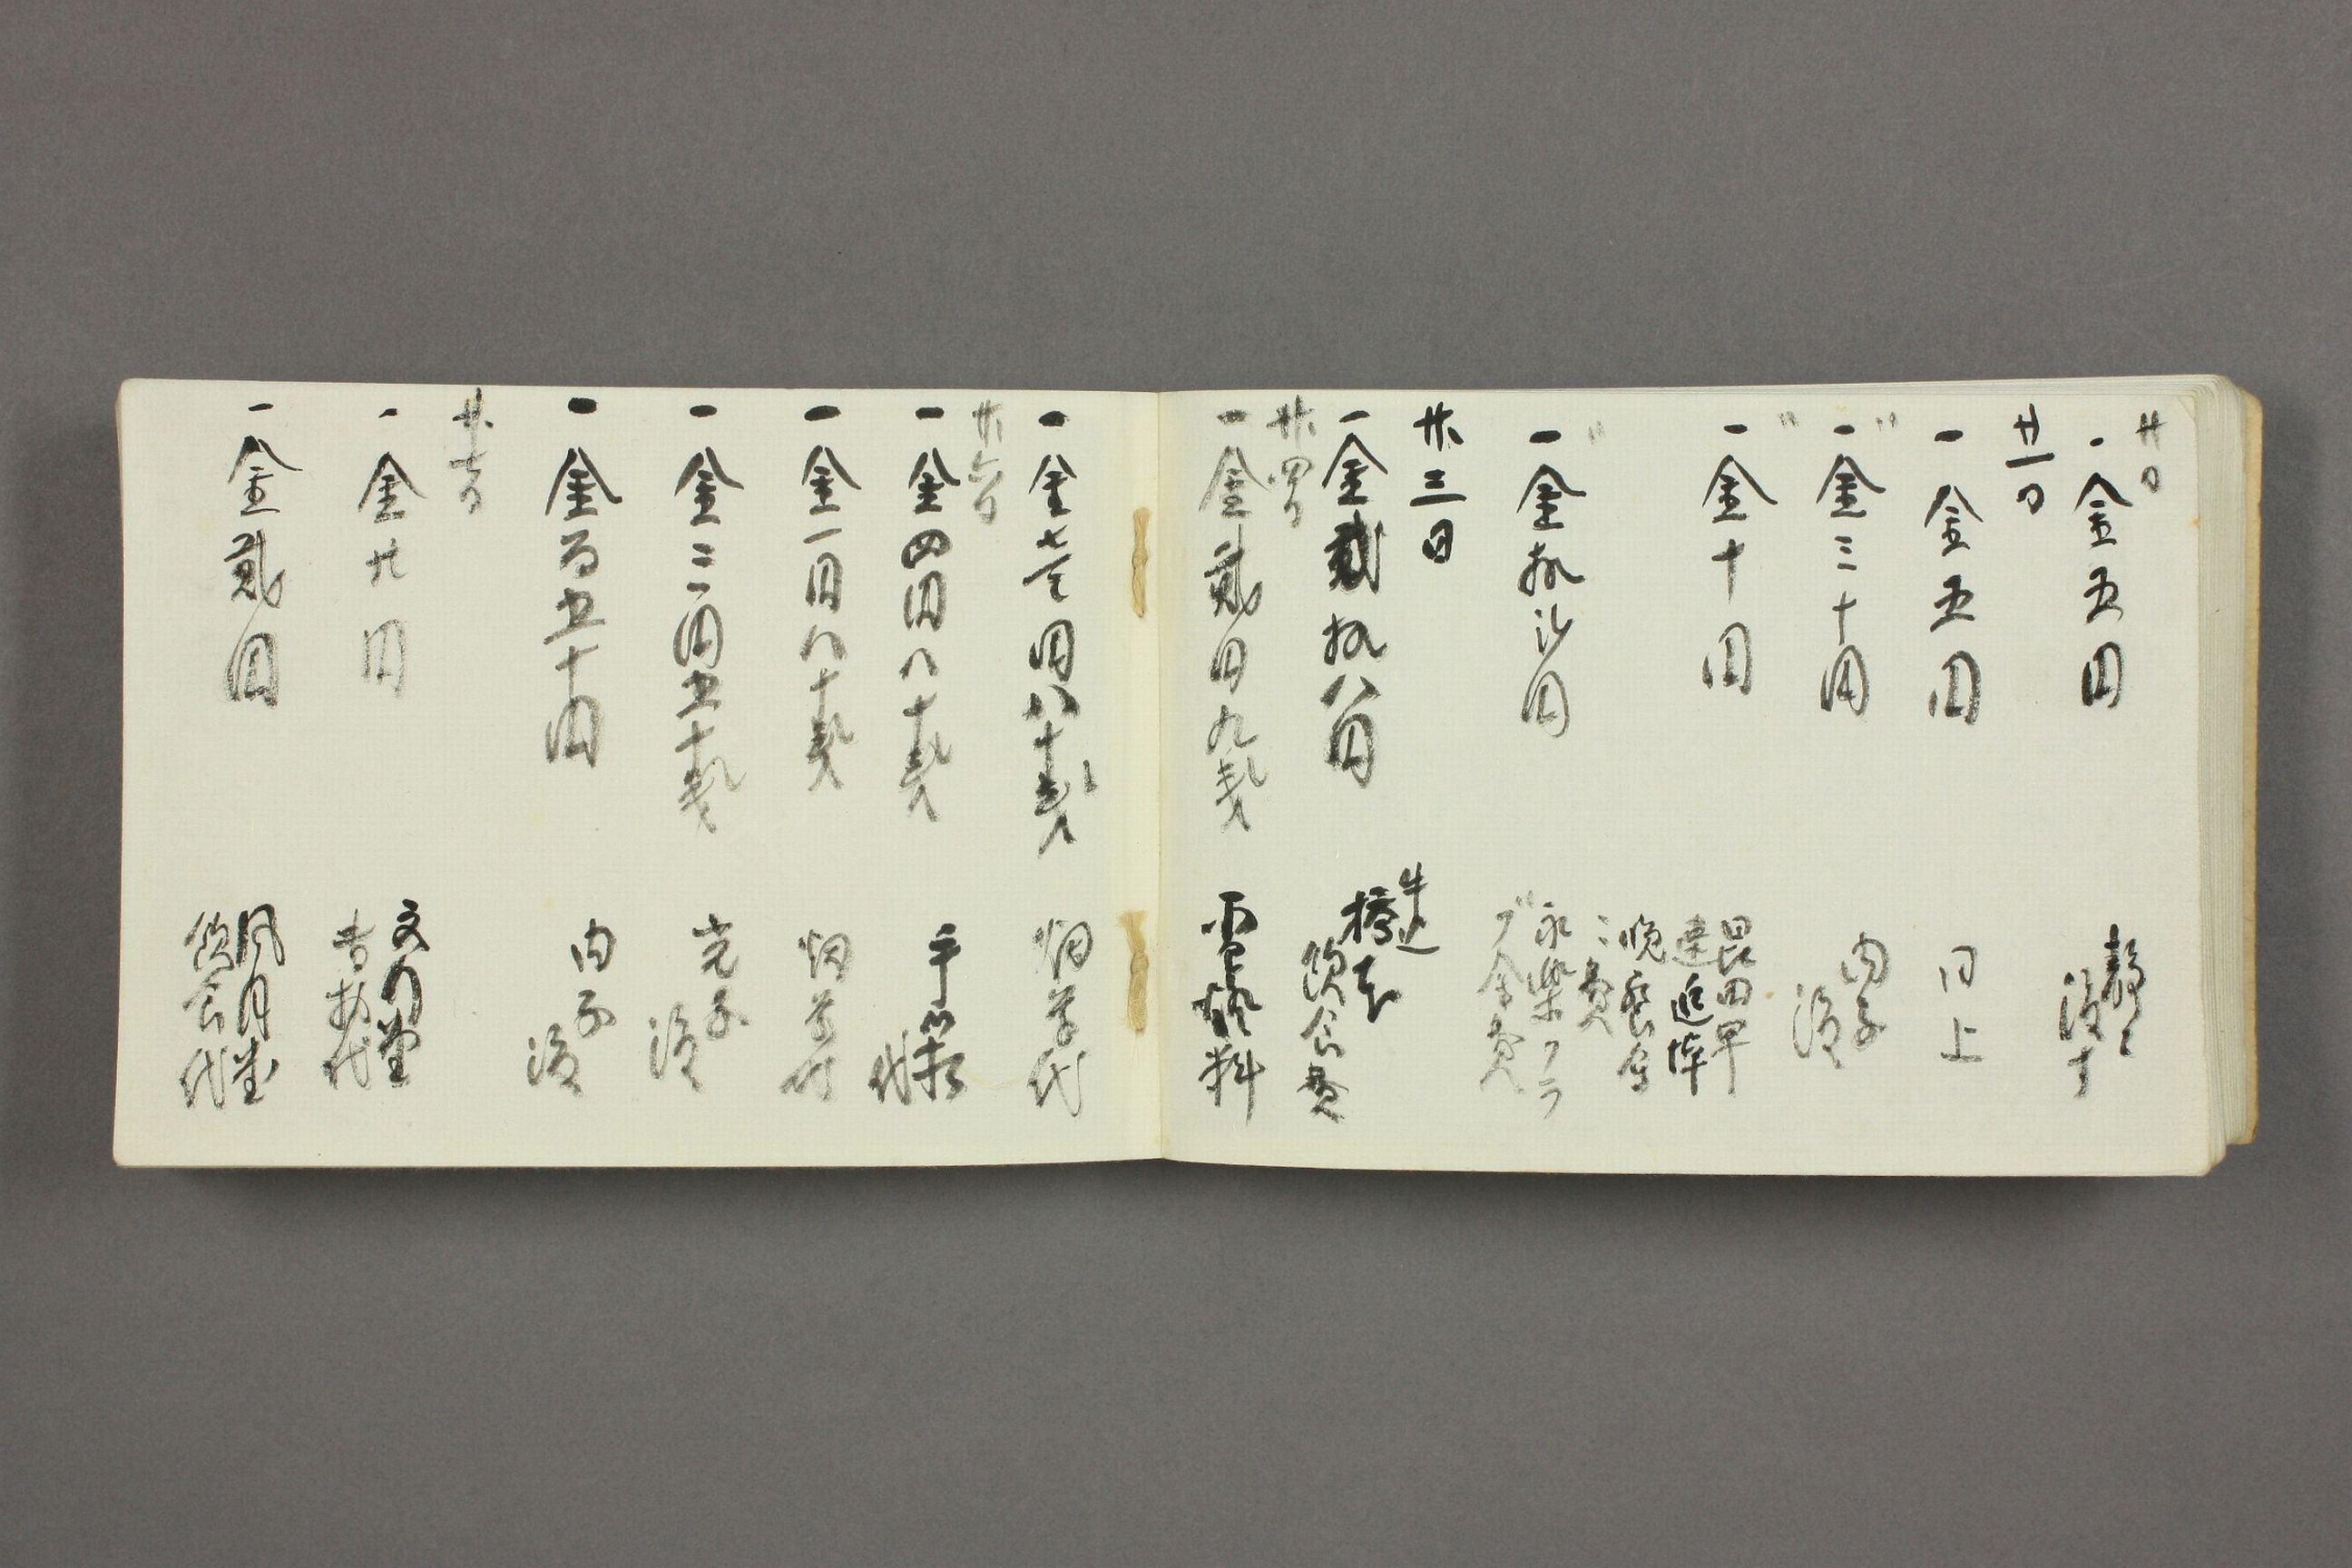 廿日
一金五円
渡す
廿一日
一金五円
同上
〃
一金三十円
内子
渡
〃
一金十円
昆田早
達追悼
晩餐会
ニ費
〃
一金拾弐円
永楽クラ
ブ会費
廿三日
一金貳拾八円
牛込
飲食費
廿四日
一金貳円九銭
電信料
一金七円八十銭
烟草代
廿六日
一金四円八十銭
手
代
一金一円八十銭
烟草代
一金二円五十銭
光子
渡
一金百五十円
内子
渡
廿七日
一金廿円
文行堂
書物代
一金貳円
風月堂
飲食代